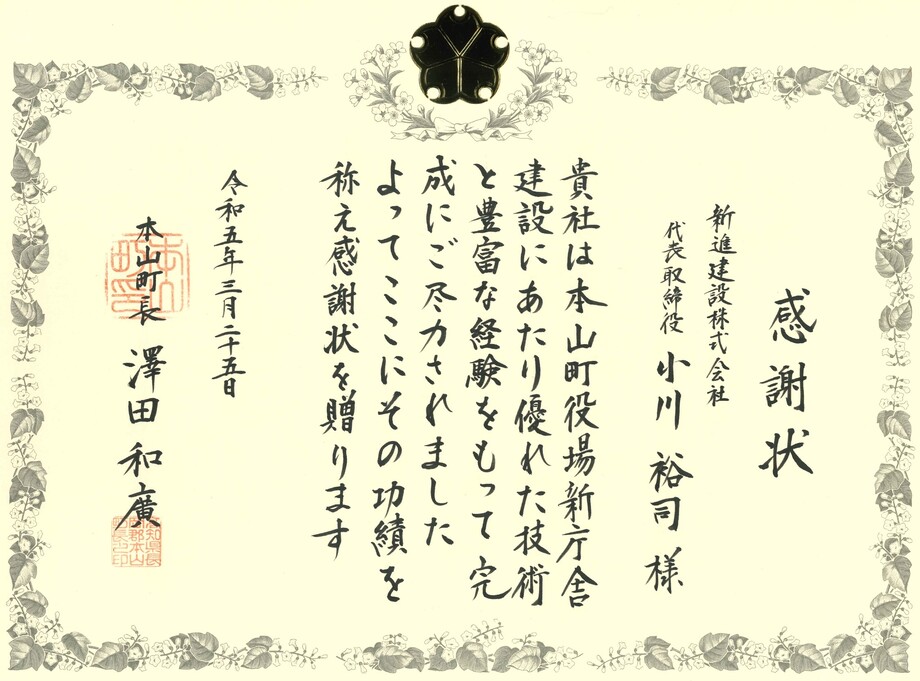 感謝状
新進建設株式会社
代表取締役 小川 裕司 様
貴社は本山町役場新庁舎
建設にあたり優れた技術
と豊富な経験をもって完
成にご尽力されました
よってここにその功績を
称え感謝状を贈ります
令和五年三月二十五日
本山町長 澤田 和廣